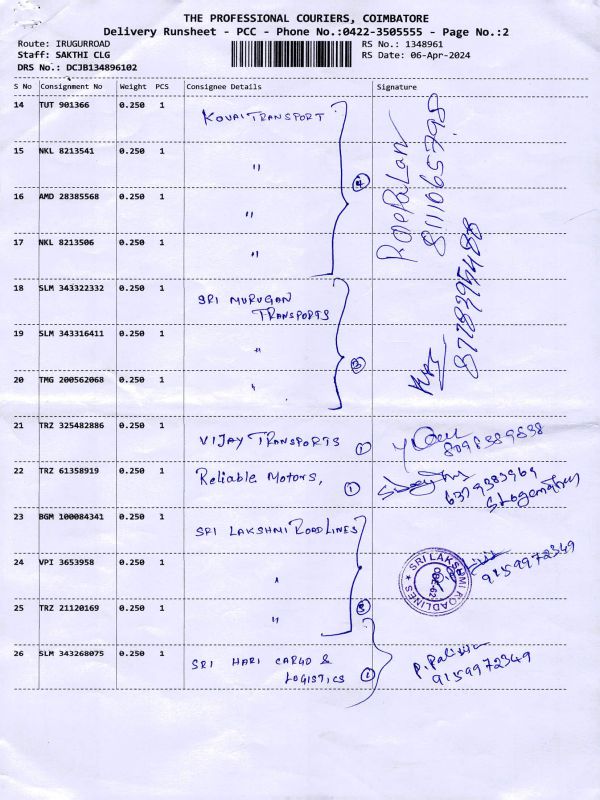 THE PROFESSIONAL COURIERS, COIMBATORE
Delivery Runsheet - PCC - Phone No.:0422-3505555 - Page No.:2
Route: IRUGURROAD
RS No.: 1348961
Staff: SAKTHI CLG
RS Date: 06-Apr-2024
DRS No.: DCJB134896102
S No Consignment No Weight PCS Consignee Details Signature
14 TUT 901366 0.250 1 KOVAI TRANSPORT
15 NKL 8213541 0.250 1 "
16 AMD 28385568 0.250 1 " 4
17 NKL 8213506 0.250 1 "
8778395488
18 SLM 343322332 0.250 1 SRI MURUGAN
TRANSPORTS
19 SLM 343316411 0.250 1 "
3
20 TMG 200562068 0.250 1 "
21 TRZ 325482886 0.250 1 VIJAY TRANSPORTS 1
22 TRZ 61358919 0.250 1 Reliable Motors, 1
6379383969
23 BGM 100084341 0.250 1 SRI LAKSHMI ROAD LINES
24 VPI 3653958 0.250 1 "
9159972349
SRI LAKSHMI ROADLINES
25 TRZ 21120169 0.250 1 "
26 SLM 343268075 0.250 1 SRI HARI CARGO &
LOGISTICS 1
9159972349